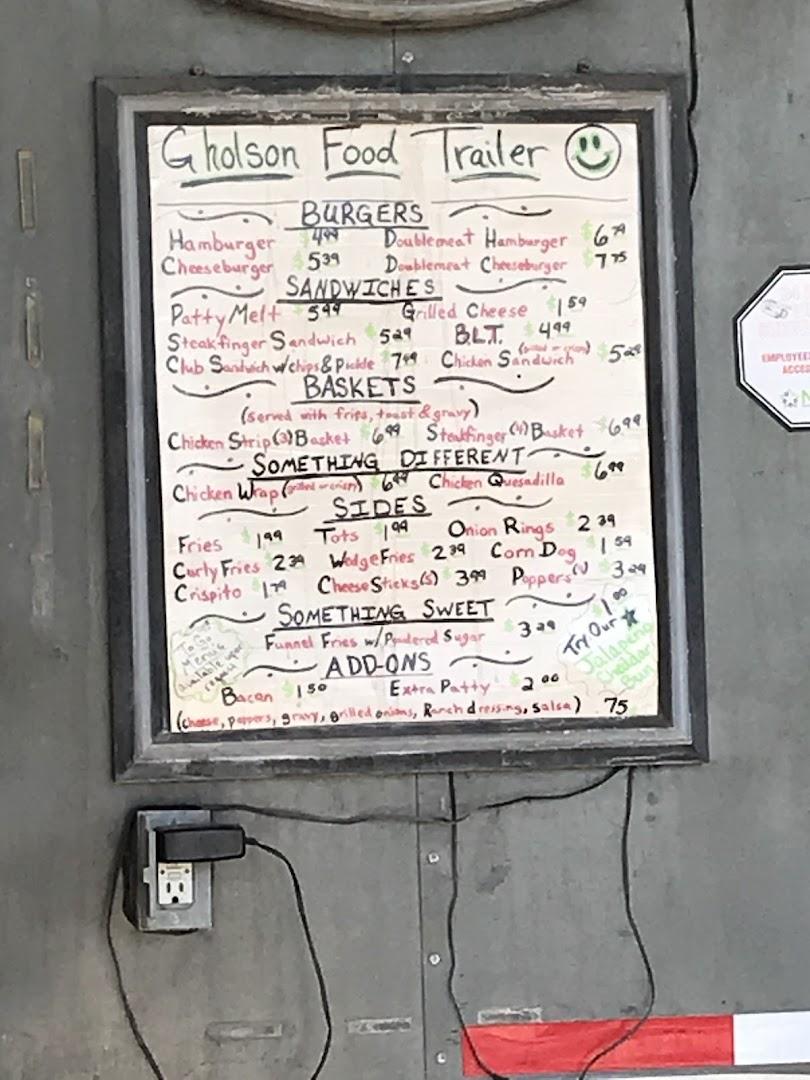 Gholson Food Trailer
BURGERS
Hamburger $4.99 Doublemeat Hamburger $6.79
Cheeseburger $5.39 Doublemeat Cheeseburger $7.75
SANDWICHES
Patty Melt $5.99 Grilled Cheese $1.59
Steakfinger Sandwich $5.29 BLT. $4.99
Club Sandwich w/chips & Pickle $7.49 Chicken Sandwich (grilled or crispy) $5.29
BASKETS
(served with fries, toast & gravy)
Chicken Strip (3) Basket $6.99 Steakfinger (4) Basket $6.99
SOMETHING DIFFERENT
Chicken Wrap (grilled or crispy) $6.49 Chicken Quesadilla $6.99
SIDES
Fries $1.99 Tots $1.99 Onion Rings $2.39
Curly Fries $2.39 Wedge Fries $2.39 Corn Dog $1.59
Crispito $1.79 Cheese Sticks (5) $3.99 Poppers $3.29
SOMETHING SWEET
Funnel Fries w/Powdered Sugar $3.29
$1.00
Try Our
Jalapeno
Cheddar
Bun
To Go
Menus
available upon
request
ADD-ONS
Bacon $1.50 Extra Patty $2.00
(cheese, peppers, gravy, grilled onions, Ranch dressing, salsa) 75
EMPLOYEE
ACCES